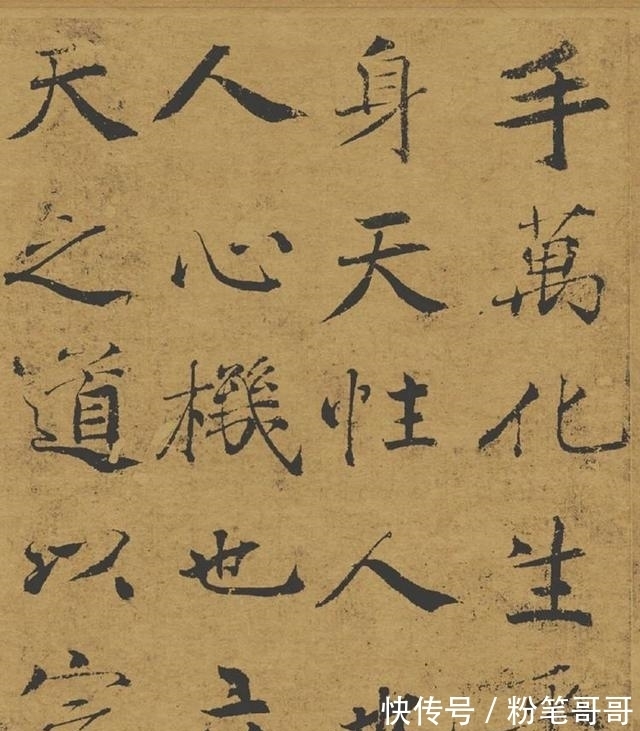 手萬化生
身天性人
人心機也
天之道以
快传号 / 粉笔哥哥